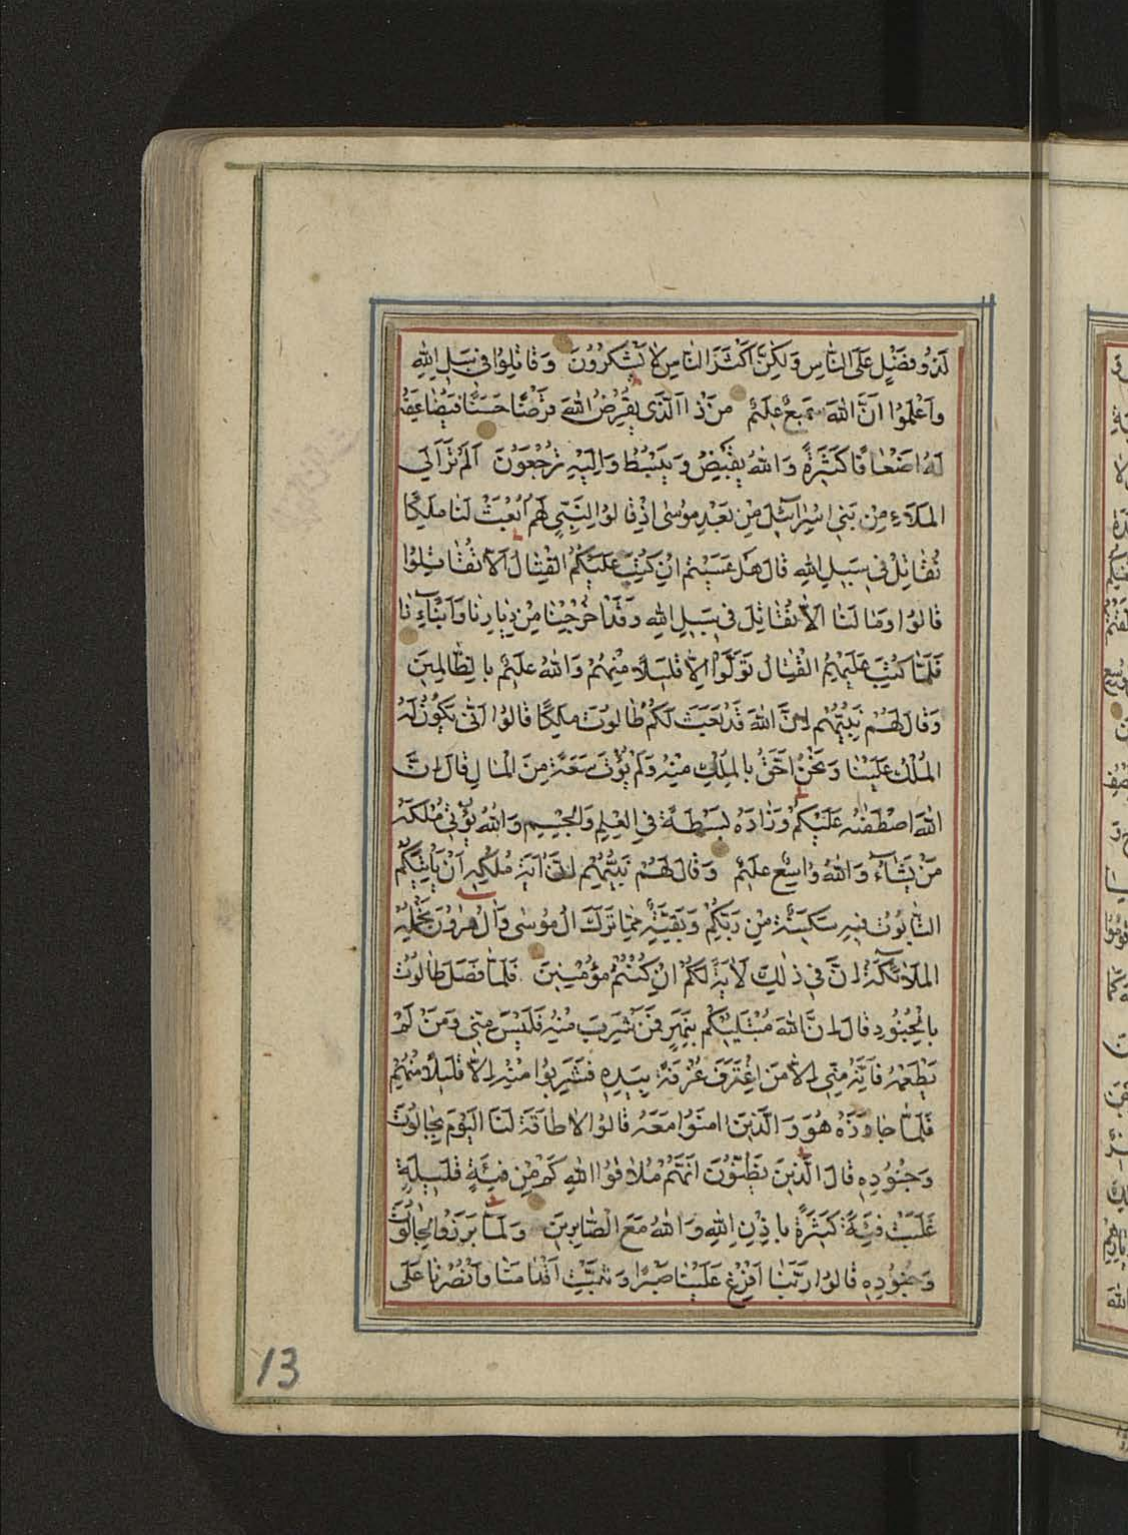 لَذُو فَضْلٍ عَلَى النَّاسِ وَلَكِنَّ أَكْثَرَ النَّاسِ لَا يَشْكُرُونَ وَقَاتِلُوا فِي سَبِيلِ اللَّهِ
وَاعْلَمُوا أَنَّ اللَّهَ سَمِيعٌ عَلِيمٌ مَنْ ذَا الَّذِي يُقْرِضُ اللَّهَ قَرْضًا حَسَنًا فَيُضَاعِفَهُ
لَهُ أَضْعَافًا كَثِيرَةً وَاللَّهُ يَقْبِضُ وَيَبْسُطُ وَإِلَيْهِ تُرْجَعُونَ أَلَمْ تَرَ إِلَى
الْمَلَإِ مِنْ بَنِي إِسْرَائِيلَ مِنْ بَعْدِ مُوسَى إِذْ قَالُوا لِنَبِيٍّ لَهُمُ ابْعَثْ لَنَا مَلِكًا
نُقَاتِلْ فِي سَبِيلِ اللَّهِ قَالَ هَلْ عَسَيْتُمْ إِنْ كُتِبَ عَلَيْكُمُ الْقِتَالُ أَلَّا تُقَاتِلُوا
قَالُوا وَمَا لَنَا أَلَّا نُقَاتِلَ فِي سَبِيلِ اللَّهِ وَقَدْ أُخْرِجْنَا مِنْ دِيَارِنَا وَأَبْنَائِنَا
فَلَمَّا كُتِبَ عَلَيْهِمُ الْقِتَالُ تَوَلَّوْا إِلَّا قَلِيلًا مِنْهُمْ وَاللَّهُ عَلِيمٌ بِالظَّالِمِينَ
وَقَالَ لَهُمْ نَبِيُّهُمْ إِنَّ اللَّهَ قَدْ بَعَثَ لَكُمْ طَالُوتَ مَلِكًا قَالُوا أَنَّى يَكُونُ لَهُ
الْمُلْكُ عَلَيْنَا وَنَحْنُ أَحَقُّ بِالْمُلْكِ مِنْهُ وَلَمْ يُؤْتَ سَعَةً مِنَ الْمَالِ قَالَ إِنَّ
اللَّهَ اصْطَفَاهُ عَلَيْكُمْ وَزَادَهُ بَسْطَةً فِي الْعِلْمِ وَالْجِسْمِ وَاللَّهُ يُؤْتِي مُلْكَهُ
مَنْ يَشَاءُ وَاللَّهُ وَاسِعٌ عَلِيمٌ وَقَالَ لَهُمْ نَبِيُّهُمْ إِنَّ آيَةَ مُلْكِهِ أَنْ يَأْتِيَكُمُ
التَّابُوتُ فِيهِ سَكِينَةٌ مِنْ رَبِّكُمْ وَبَقِيَّةٌ مِمَّا تَرَكَ آلُ مُوسَى وَآلُ هَارُونَ تَحْمِلُهُ
الْمَلَائِكَةُ إِنَّ فِي ذَلِكَ لَآيَةً لَكُمْ إِنْ كُنْتُمْ مُؤْمِنِينَ فَلَمَّا فَصَلَ طَالُوتُ
بِالْجُنُودِ قَالَ إِنَّ اللَّهَ مُبْتَلِيكُمْ بِنَهَرٍ فَمَنْ شَرِبَ مِنْهُ فَلَيْسَ مِنِّي وَمَنْ لَمْ
يَطْعَمْهُ فَإِنَّهُ مِنِّي إِلَّا مَنِ اغْتَرَفَ غُرْفَةً بِيَدِهِ فَشَرِبُوا مِنْهُ إِلَّا قَلِيلًا مِنْهُمْ
فَلَمَّا جَاوَزَهُ هُوَ وَالَّذِينَ آمَنُوا مَعَهُ قَالُوا لَا طَاقَةَ لَنَا الْيَوْمَ بِجَالُوتَ
وَجُنُودِهِ قَالَ الَّذِينَ يَظُنُّونَ أَنَّهُمْ مُلَاقُوا اللَّهِ كَمْ مِنْ فِئَةٍ قَلِيلَةٍ
غَلَبَتْ فِئَةً كَثِيرَةً بِإِذْنِ اللَّهِ وَاللَّهُ مَعَ الصَّابِرِينَ وَلَمَّا بَرَزُوا لِجَالُوتَ
وَجُنُودِهِ قَالُوا رَبَّنَا أَفْرِغْ عَلَيْنَا صَبْرًا وَثَبِّتْ أَقْدَامَنَا وَانْصُرْنَا عَلَى
13